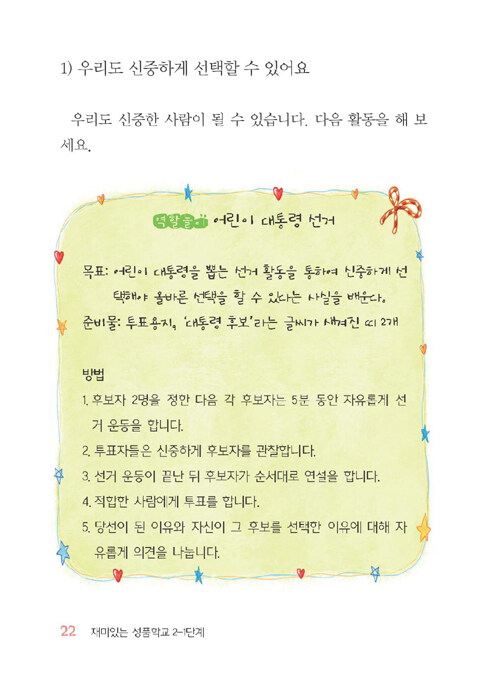 1) 우리도 신중하게 선택할 수 있어요
우리도 신중한 사람이 될 수 있습니다. 다음 활동을 해 보
세요.
역할놀이 어린이 대통령 선거
목표: 어린이 대통령을 뽑는 선거 활동을 통하여 신중하게 선
택해야 올바른 선택을 할 수 있다는 사실을 배운다.
준비물: 투표용지, '대통령 후보'라는 글씨가 새겨진 띠 2개
방법
1. 후보자 2명을 정한 다음 각 후보자는 5분 동안 자유롭게 선
거 운동을 합니다.
2. 투표자들은 신중하게 후보자를 관찰합니다.
3. 선거 운동이 끝난 뒤 후보자가 순서대로 연설을 합니다.
4. 적합한 사람에게 투표를 합니다.
5. 당선이 된 이유와 자신이 그 후보를 선택한 이유에 대해 자
유롭게 의견을 나눕니다.
22 재미있는 성품학교 2-1단계